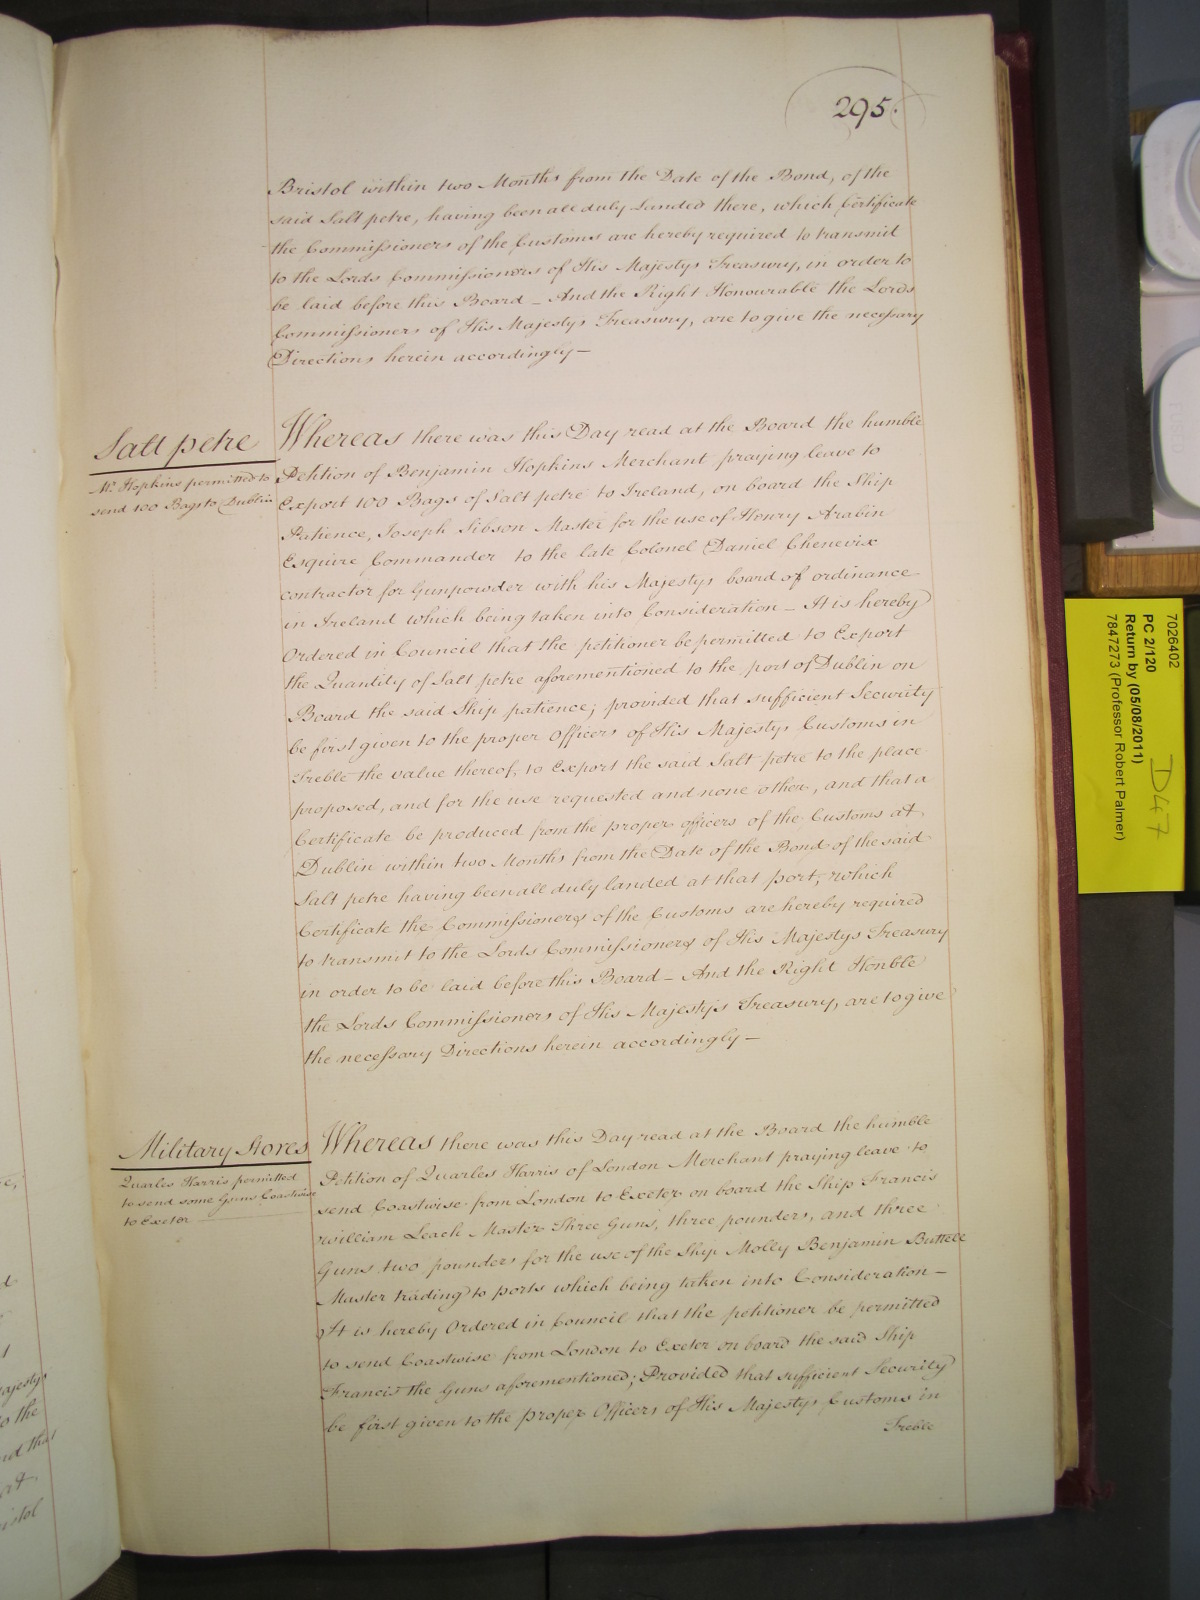 295.
Bristol within two Months from the Date of the Bond, of the
said Salt petre, having been all duly Landed there, which Certificate
the Commissioners of the Customs are hereby required to transmit
to the Lords Commissioners of His Majestys Treasury, in order to
be laid before this Board – And the Right Honourable the Lords
Commissioners of His Majestys Treasury, are to give the necessary
Directions herein accordingly –
Salt petre
Mr. Hopkins permitted to
send 100 Bags to Dublin
Whereas there was this Day read at the Board the humble
Petition of Benjamin Hopkins Merchant praying leave to
Export 100 Bags of Salt petre to Ireland, on board the Ship
Patience, Joseph Sibson Master for the use of Henry Arabin
Esquire Commander to the late Colonel Daniel Chenevix
contractor for Gunpowder with his Majestys board of ordinance
in Ireland which being taken into Consideration – It is hereby
Ordered in Council that the petitioner be permitted to Export
the Quantity of Salt petre aforementioned to the port of Dublin on
Board the said Ship patience; provided that sufficient Security
be first given to the proper Officers of His Majestys Customs in
Treble the value thereof, to Export the said Salt petre to the place
proposed, and for the use requested and none other, and that a
Certificate be produced from the proper officers of the Customs at
Dublin within two Months from the Date of the Bond of the said
Salt petre having been all duly landed at that port, which
Certificate the Commissioners of the Customs are hereby required
to transmit to the Lords Commissioners of His Majestys Treasury
in order to be laid before this Board – And the Right Honble
the Lords Commissioners of His Majestys Treasury, are to give
the necessary Directions herein accordingly –
Military Stores
Quarles Harris permitted
to send some Guns Coastwise
to Exeter
Whereas there was this Day read at the Board the humble
Petition of Quarles Harris of London Merchant praying leave to
send Coastwise from London to Exeter on board the Ship Francis
william Leach Master Three Guns, three pounders, and three
Guns two pounders for the use of the Ship Molly Benjamin Buttell
Master trading to ports which being taken into Consideration –
It is hereby Ordered in Council that the petitioner be permitted
to send Coastwise from London to Exeter on board the said Ship
Francis the Guns aforementioned; Provided that sufficient Security
be first given to the proper Officers of His Majestys Customs in
Treble
7026402
PC 2/120
Return by (05/08/2011)
7847273 (Professor Robert Palmer)
D47